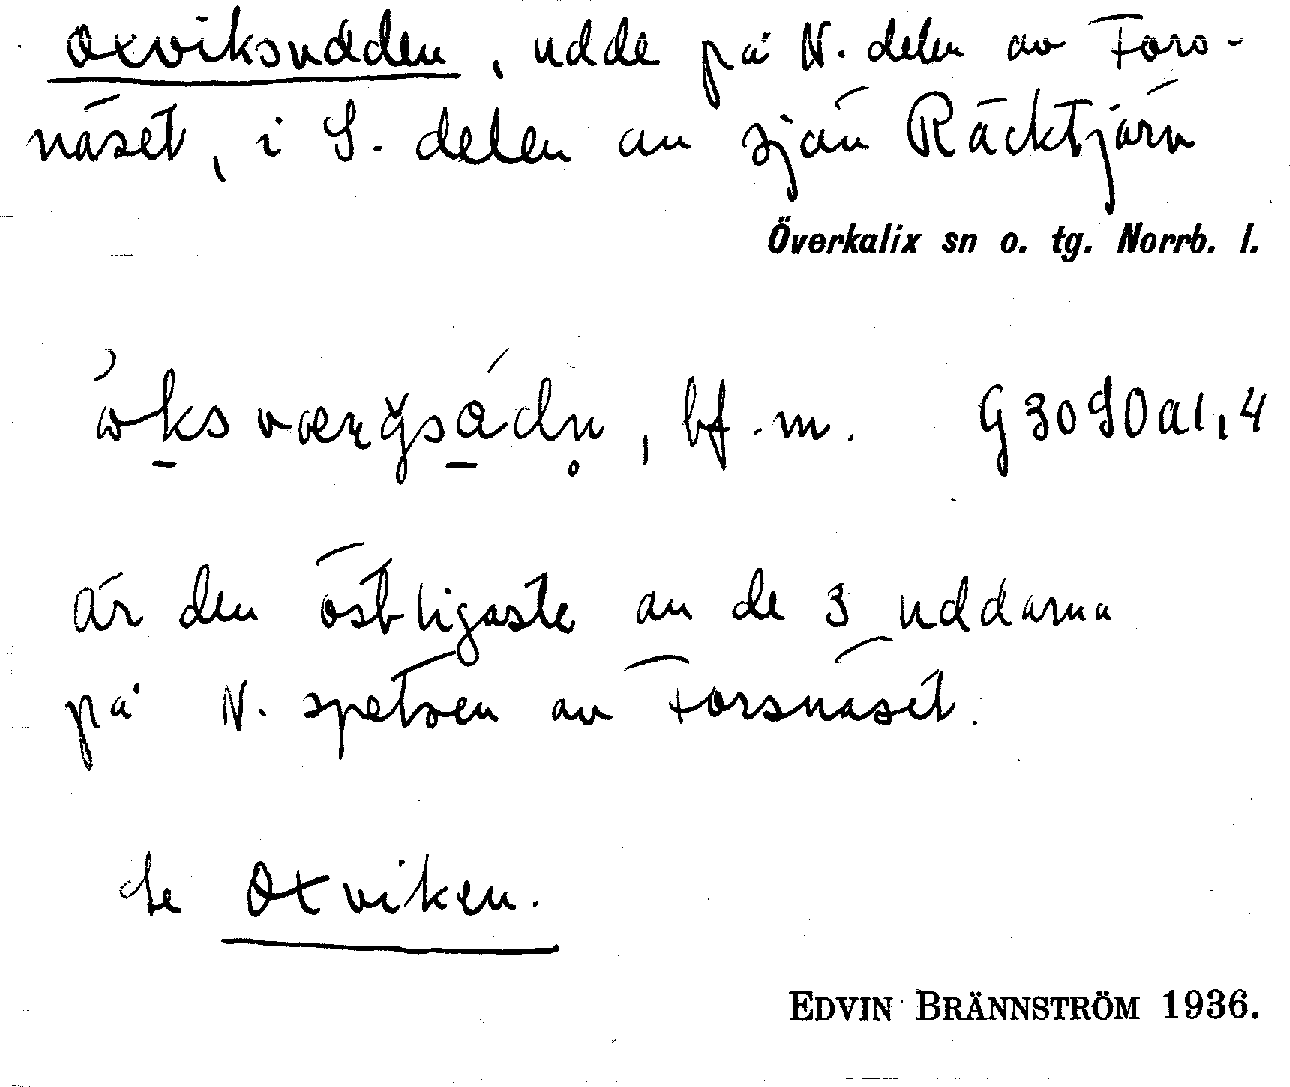 Oxviksudden, udde på N. delen av Fors-
näset, i S. delen av sjön Räcktjärn
Överkalix sn o. tg. Norrb. l.
bf. m. G3090a1,4
är den östligaste av de 3 uddarna
på N. spetsen av Forsnäset.
Se Oxviken.
EDVIN BRÄNNSTRÖM 1936.